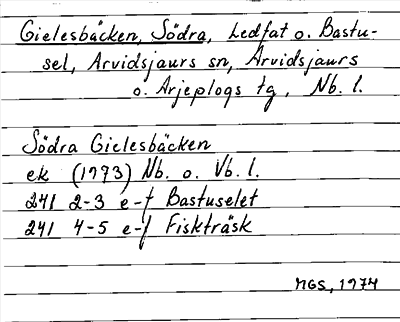 Gielesbäcken, Södra, Ledfat o. Bastu-
sel, Arvidsjaurs sn, Arvidsjaurs
o. Arjeplogs tg, Nb. l.
Södra Gielesbäcken
ek (1973) Nb. o. Vb. l.
241 2-3 e-f Bastuselet
241 4-5 e-f Fiskträsk
MGS, 1974